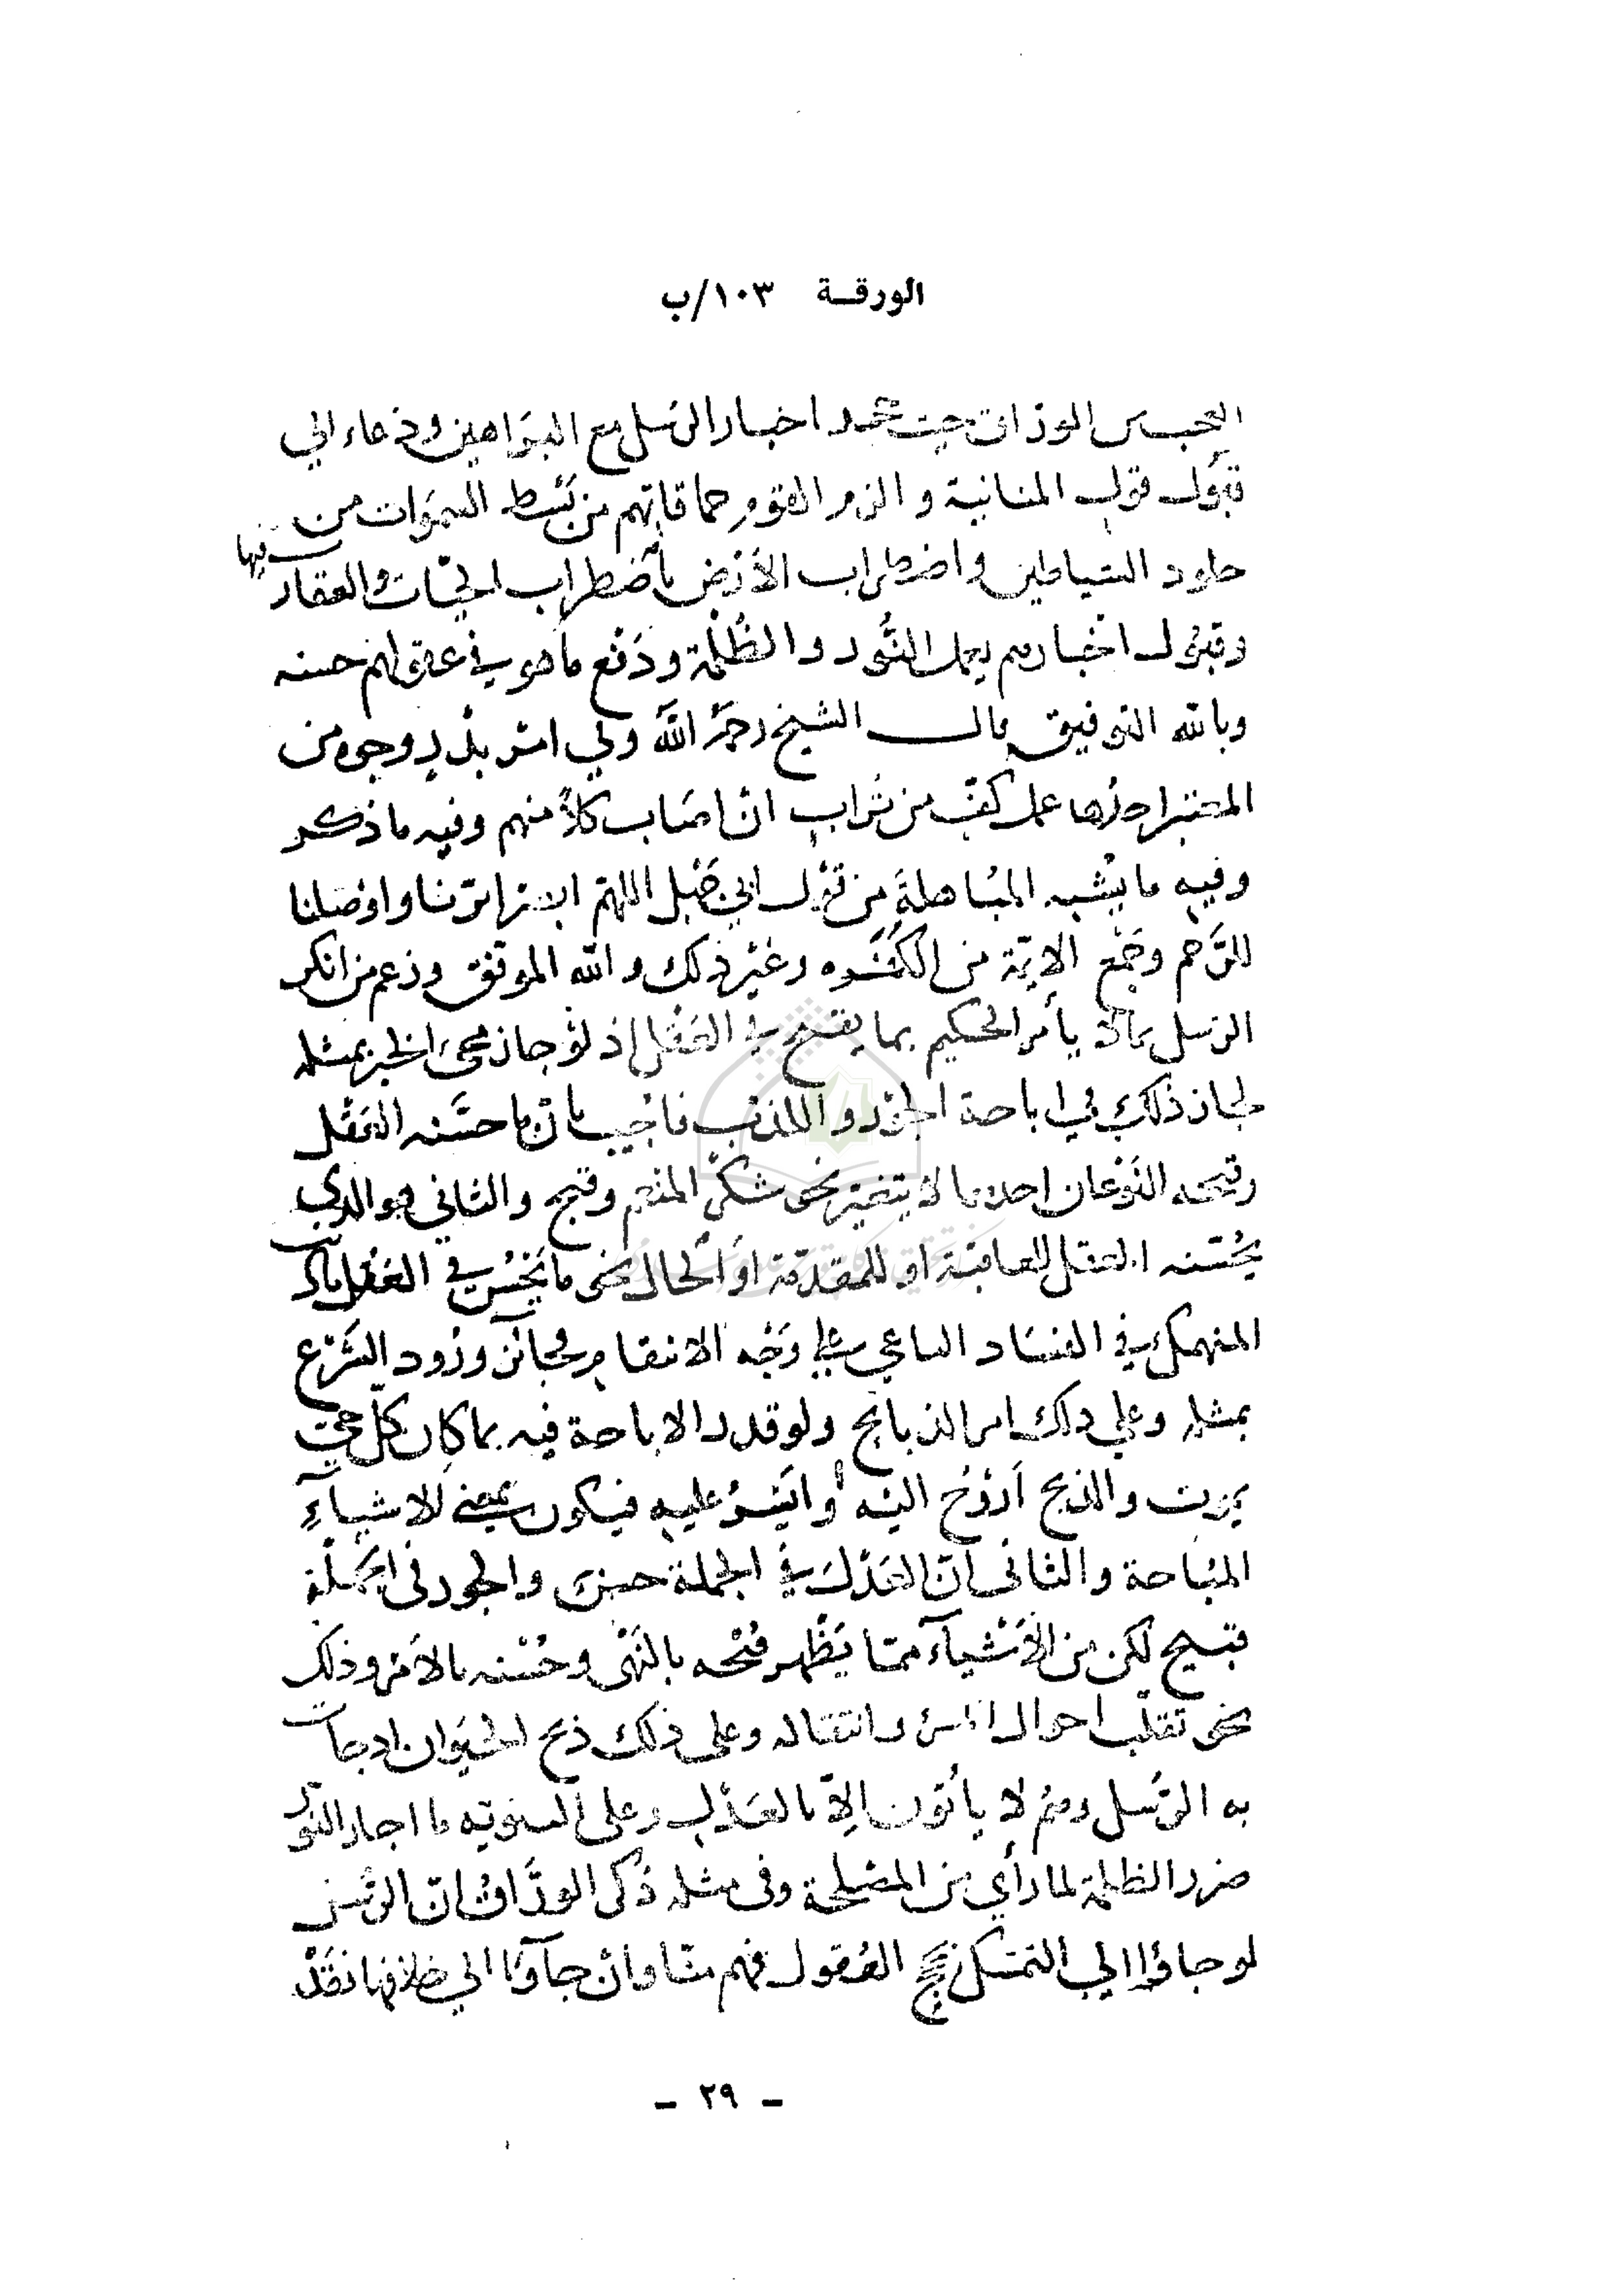 الورقة ١٠٣/ب
العجب من الوراق حيث جحد اخبار الرسل مع البراهين ودعاء الى
قبول قول المنانية والزم القوم حماقاتهم من بسط السموات من
جلود الشياطين واضطراب الأرض باضطراب الحيات والعقارب فيها
وقبول اخبارهم بعمل النُّور والظُلْمة ودَفع ما هو في عقولهم حسنه
وبالله التوفيق قال الشيخ رحمَهُ اللَّهُ ولي وجوه من
المعتبر احدُها عمل كفّ من تُراب ان اصَاب كلاً منهم وفيه ما ذكر
وفيه ما يشبه المبَاهلَةَ من قول ابي جَهْل اللهمّ ابرنا واوْصَلنا
للرَّحم وجَمْع الاية من الكَفَره وغَيْر ذلك والله الموفق وزعم من انكر
الرسل بما لا يأمر الحكيم بما يقبح في العَقْل اذ لوْ جاز مجئ الخبر بمثله
لجاز ذلك في اباحة الجَوْر والكذب فاجيب بانّ ما حسَّنه العَقْل
وقبحه النَوْعان احدهما لا يتغير نحو شكر المنعم وقبح والثاني هو الذي
يُحسّنه العقل للعاقبة او للمقدمة او الحال نحو ما يَحْسُن في العَقْل
المنهمك في الفسَاد الساعي على وَجْه الانتقام فجائز ورُود الشَرْع
بمثله وعلى ذلك امر الذبائح ولو قدر الاباحة فيه بما كان كلّ حيّ
يموت والذبح اَرْوَحُ اليْه أو ايسَرُ عليه فيكون بمعنى للاشياءِ
المبَاحة والثانى انّ العَدْلَ في الجملة حسَن والجور فى الجملة
قبيح لكن من الأشياءَ ممّا يَظْهر قُبْحه بالنَهْى وحُسْنه بالاَمْر وذلك
نحو تقلّب احوال وانتقاله وعلى ذلك ذبح الحيَوان اذ جات
به الرُّسل وهُم لا يأتون الاّ بالعَدْل وعلى الثنوية ما اجاز النوُر
ضرر الظلمة لما رأى من المصْلحة وفى مثله ذكَر الورَّاق انّ الرسُل
لو جاؤا الى التمسّك بحُجج العُقول فهم منّا وان جاؤا الى خلافها فقَدْ
- ٢٩ -